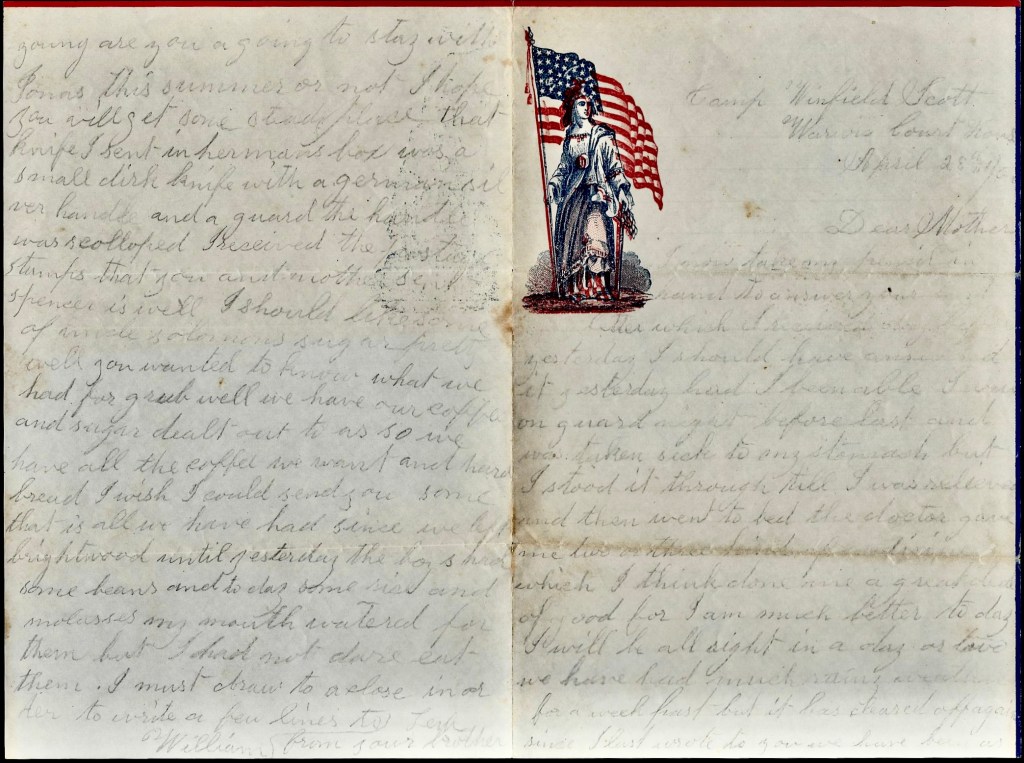 young are you a going to stay with
Jonas this summer or not I hope
you will get some that
knife I sent in hermans box was a
small dirk knife with a german sil
ver handle and a guard the handle
was scolloped I received the postage
stamps that you and mother sent
spencer is well I should like some
of uncle solomons sugar first
well you wanted to know what we
had for grub well we have our coffe
and sugar dealt out to us so we
have all the coffee we want and hard
bread I wish I could send you some
that is all we have had since we left
brightwood until yesterday the boys had
some beans and to day some rice and
molasses my mouth watered for
them but I had not dare eat
them. I must draw to a close in or
der to write a few lines to
William from your brother
Camp Winfield Scott
Court
April
Dear Mother
I now take my pencil in
hand to answer your
which I received
yesterday I should have answered
it yesterday had I been able I was
on guard night before last and
was taken sick to my stomach but
I stood it through till I was relieved
and then went to bed the doctor gave
me two or three
which I think done me a great deal
of good for I am much better to day
I will be all right in a day or two
we have had much rainy weather
for a week past but it has cleared off again
since I last wrote to you we have been